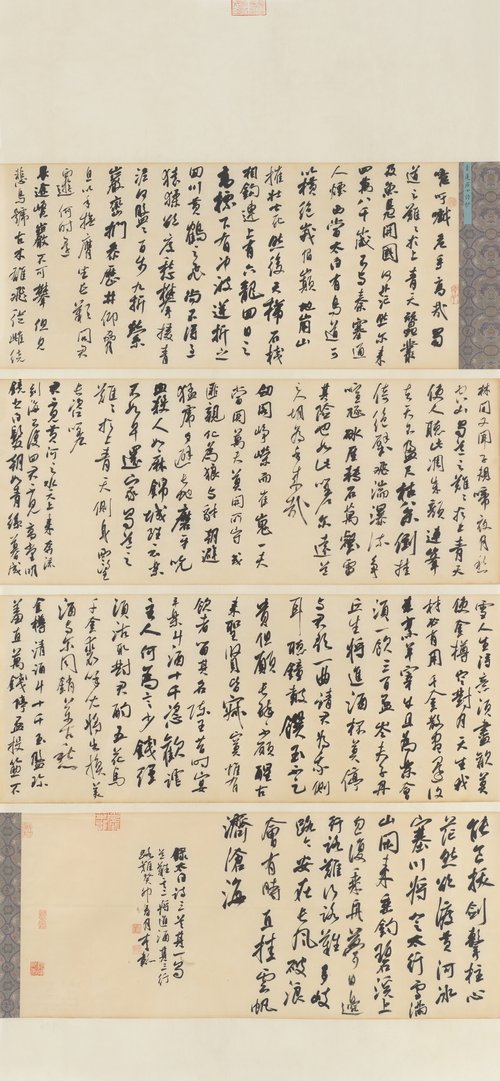 噫吁嚱危乎高哉蜀
道之難難於上青天蠶叢
及魚鳧開國何茫然爾來
四萬八千歲不與秦塞通
人煙西當太白有鳥道可
以橫絕峨眉巔地崩山
摧壯士死然後天梯石棧
相鉤連上有六龍回日之
高標下有沖波逆折之
回川黃鶴之飛尚不得過
猿猱欲度愁攀援青
泥何盤盤百步九折縈
巖巒捫參歷井仰脅
息以手撫膺坐長歎問君
西遊何時還
畏途巉巖不可攀但見
悲鳥號古木雄飛從雌繞
林間又聞子規啼夜月愁
空山蜀道之難難於上青天
使人聽此凋朱顏連峰
去天不盈尺枯松倒挂
倚絕壁飛湍瀑流爭
喧豗砯厓轉石萬壑雷
其險也如此嗟爾遠道
之人胡為乎來哉
劍閣崢嶸而崔嵬一夫
當關萬夫莫開所守或
匪親化為狼與豺朝避
猛虎夕避長蛇磨牙吮
血殺人如麻錦城雖云樂
不如早還家蜀道之
難難於上青天側身西望
長咨嗟
君不見黃河之水天上來奔流
到海不復回君不見高堂明
鏡悲白髮朝如青絲暮成
雪人生得意須盡歡莫
使金樽空對月天生我
材必有用千金散盡還復
來烹羊宰牛且為樂會
須一飲三百杯岑夫子丹
丘生將進酒杯莫停
與君歌一曲請君為我側
耳聽鐘鼓饌玉不足
貴但願長醉不願醒古
來聖賢皆寂寞惟有
飲者留其名陳王昔時宴
平樂斗酒十千恣歡謔
主人何為言少錢徑
須沽取對君酌五花馬
千金裘呼兒將出換美
酒與爾同銷萬古愁
金樽清酒斗十千玉盤珍
羞直萬錢停杯投箸不
能食拔劍擊柱心
茫然欲渡黃河冰
塞川將登太行雪滿
山閑來垂釣碧溪上
忽復乘舟夢日邊
行路難行路難多歧
路今安在長風破浪
會有時直挂雲帆
濟滄海
錄太白詩三首其一蜀
道難其二將進酒其三行
路難癸卯春月李